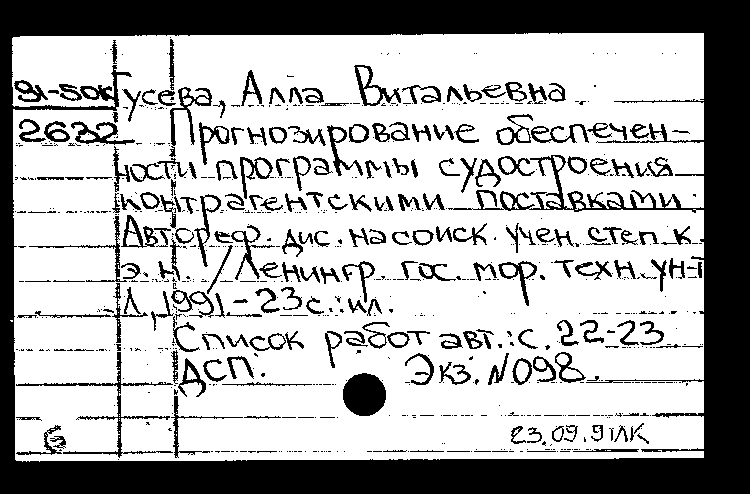 91-50к Гусева, Алла Витальевна
2632 Прогнозирование обеспечен-
ности программы судостроения
контрагентскими поставками:
Автореф. дис. на соиск. учен. степ. к.
э. н. / Ленингр. гос. мор. техн. ун-т
Л., 1991. - 23 с. : ил.
Список работ авт.: с. 22-23.
ДСП. Экз. N 098.
23.09.91 ЛК